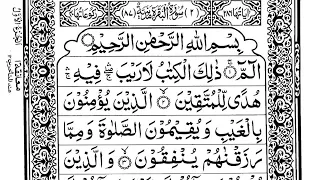 سورة البقرة مدنية
بِسْمِ اللهِ الرَّحْمٰنِ الرَّحِيْمِ
الٓمّٓ ۚ ذٰلِكَ الْكِتٰبُ لَا رَيْبَ ۛ فِيْهِ ۛ
هُدًى لِّلْمُتَّقِيْنَ ۙ الَّذِيْنَ يُؤْمِنُوْنَ
بِالْغَيْبِ وَيُقِيْمُوْنَ الصَّلٰوةَ وَمِمَّا
رَزَقْنٰهُمْ يُنْفِقُوْنَ ۙ وَالَّذِيْنَ